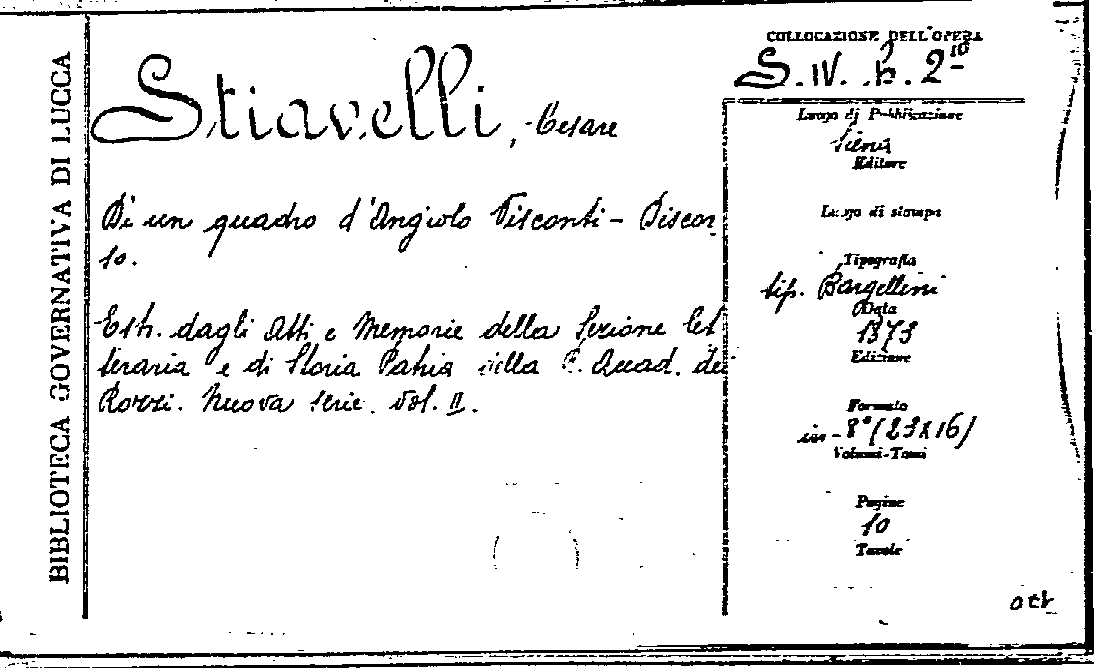 BIBLIOTECA GOVERNATIVA DI LUCCA
Stiavelli, Cesare
Di un quadro d'Angiolo Visconti - Discor
so.
Estr. dagli Atti e Memorie della Sezione let
teraria e di Storia Patria della R. Accad. dei
Rozzi. Nuova serie. Vol. II.
COLLOCAZIONE DELL'OPERA
S. IV. b. 2 10
Luogo di Pubblicazione
Siena
Editore
Luogo di stampa
Tipografia
tip. Bargellini
Data
1873
Edizione
Formato
in-8° (23x16)
Volumi-Tomi
Pagine
10
Tavole